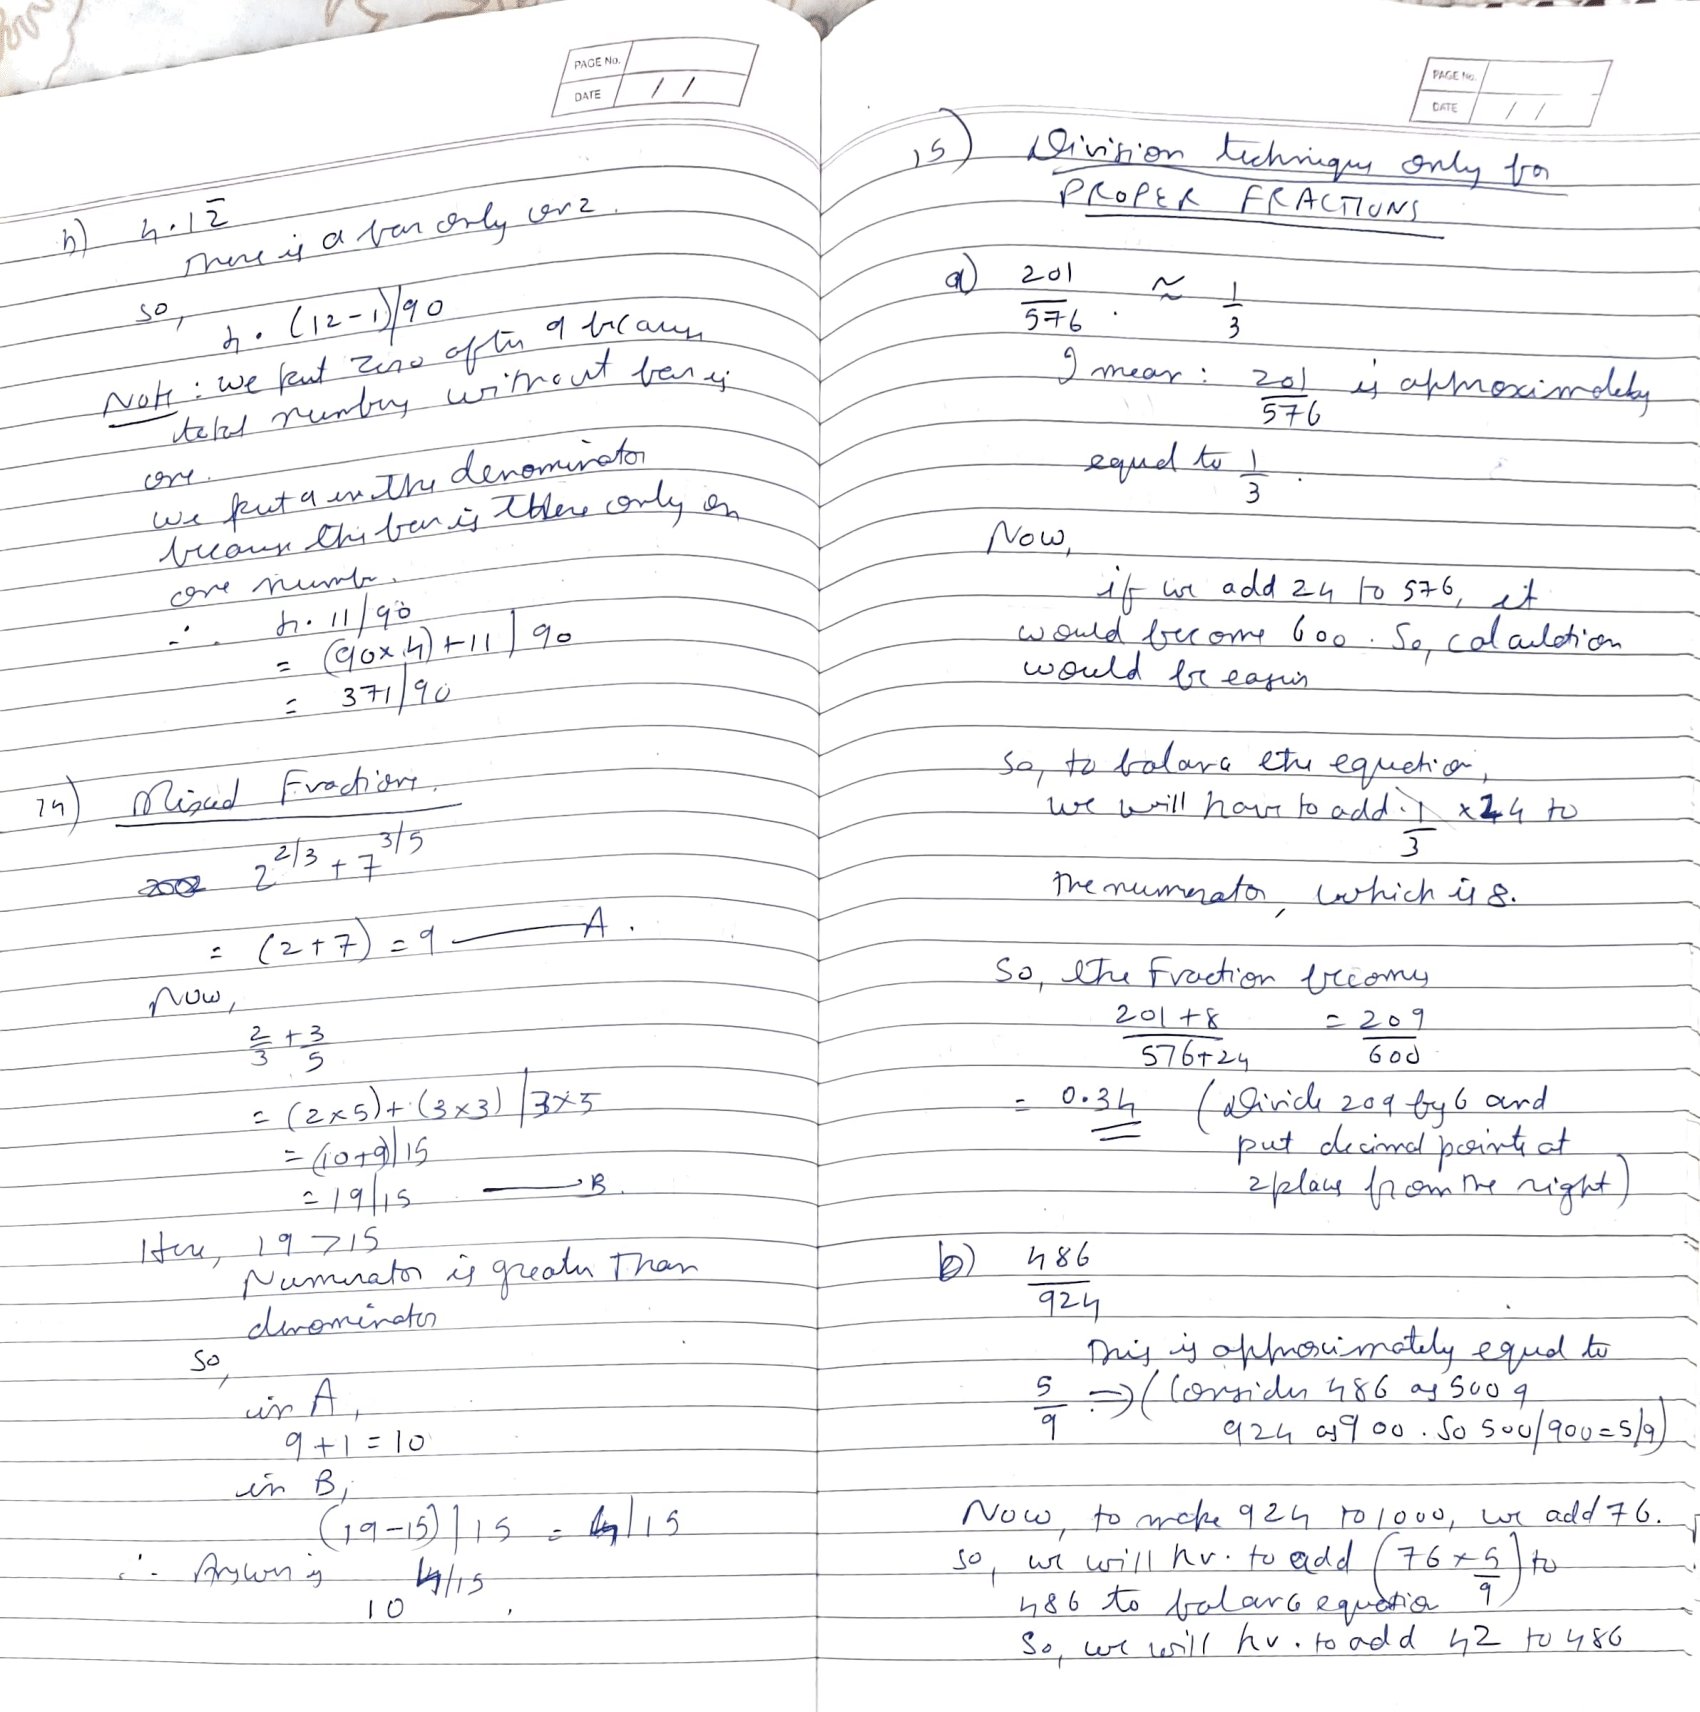 PAGE No.
DATE / /
h) 4.12̅
There is a bar only over 2.
so,
4. (12-1)/90
Note: we put zero after 9 because
total numbers without bar is
one.
We put 9 in the denominator
because the bar is there only on
one number.
∴ 4. 11/90
= (90x4)+11 / 90
= 371/90
14) Mixed Fractions.
2 2/3 + 7 3/5
= (2+7) = 9 — A.
Now,
2/3 + 3/5
= (2x5)+(3x3) / 3x5
= (10+9)/15
= 19/15 — B.
Here, 19 > 15
Numerator is greater than
denominator
so,
in A,
9+1 = 10
in B,
(19-15)/15 = 4/15
∴ Answer is 4/15
10
PAGE No.
DATE / /
15) Division techniques only for
PROPER FRACTIONS
a) 201/576 ≈ 1/3
I mean: 201/576 is approximately
equal to 1/3.
Now,
if we add 24 to 576, it
would become 600. So, calculation
would be easier
So, to balance the equation,
we will have to add 1/3 x 24 to
the numerator, which is 8.
So, the Fraction becomes
201+8/576+24 = 209/600
= 0.34 (Divide 209 by 6 and
put decimal points at
2 places from the right)
b) 486/924
This is approximately equal to
5/9 ⇒ (Consider 486 as 500 &
924 as 900. So 500/900=5/9)
Now, to make 924 to 1000, we add 76.
so, we will hv. to add (76 x 5/9) to
486 to balance equation
So, we will hv. to add 42 to 486